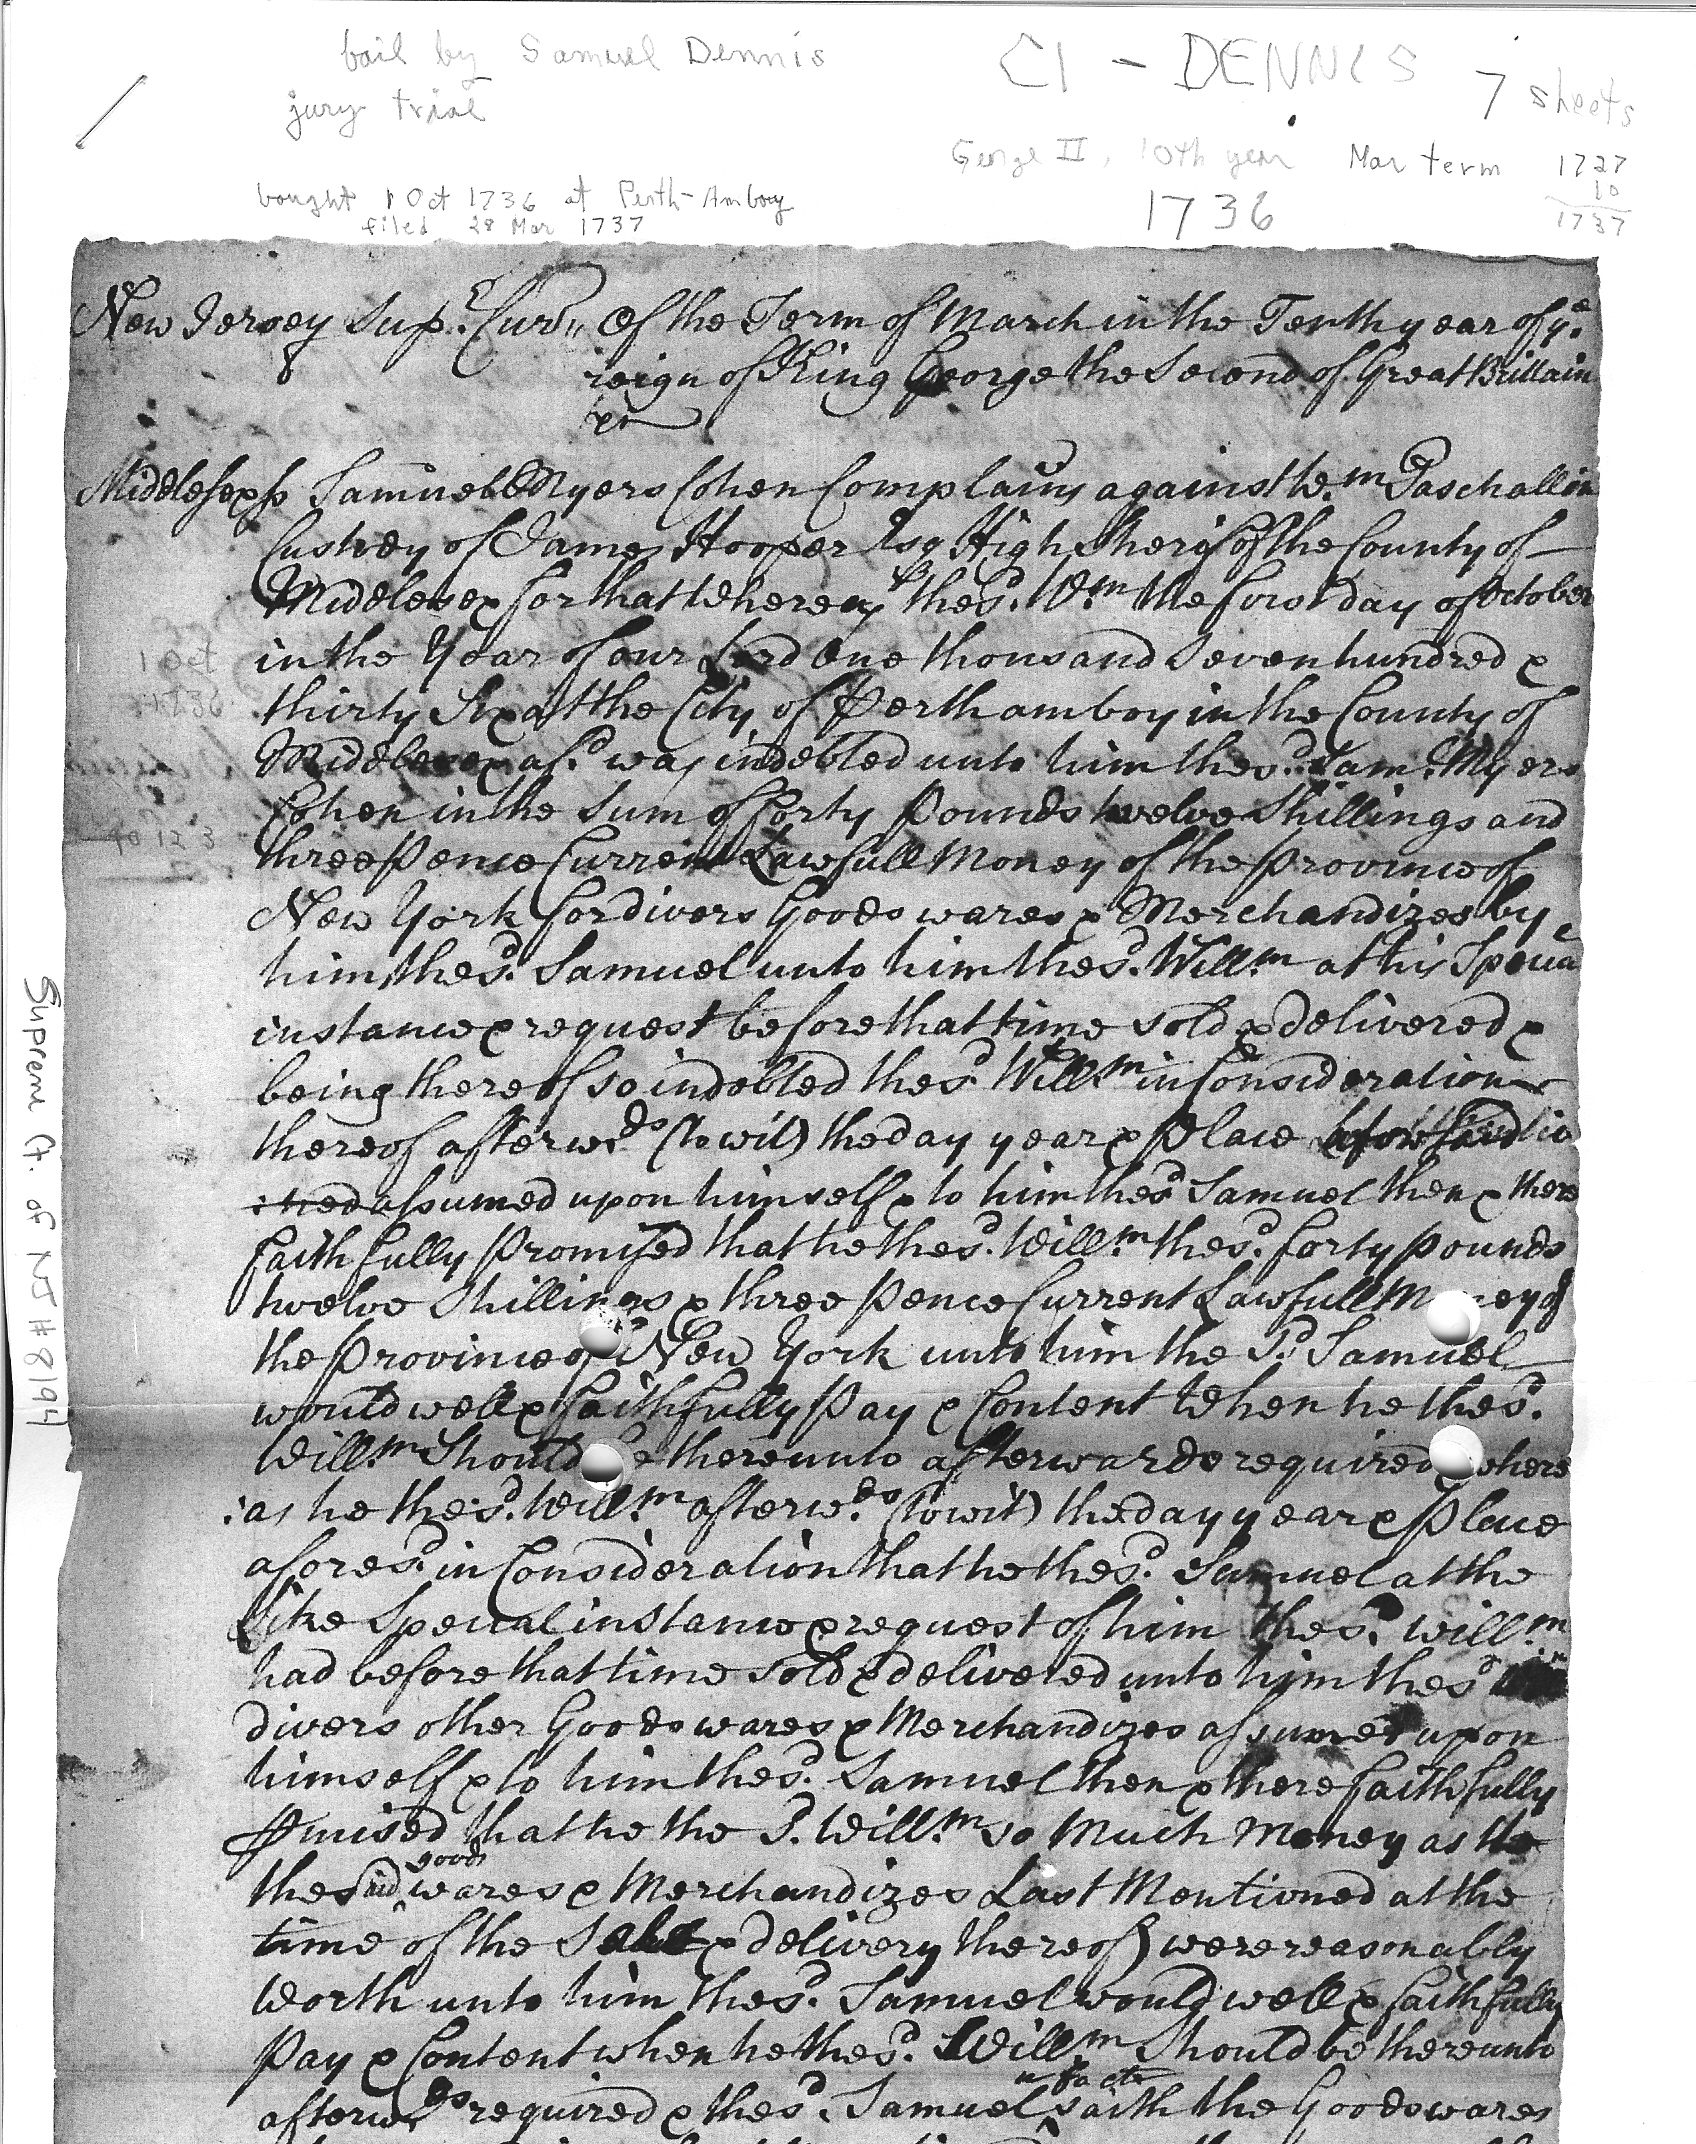 bail by Samuel Dennis
jury trial
CI - DENNIS
7 sheets
George II, 10th year Mar term 1727
10
1737
1736
bought 1 Oct 1736 at Perth-Amboy
filed 28 Mar 1737
New Jersey Sup.r Cur.. Of the Term of March in the Tenth year of ye.
reign of King George the Second of Great Brittain
&c
Middlesex ss Samuel Myers Cohen Complains against Wm. Paschall in
Custody of James Hooper Esq High Sherif of the County of
Middlesex for that Whereas the sd. Wm. the first day of October
in the Year of our Lord One thousand Seven hundred &
thirty Six at the City of Perth amboy in the County of
Middlesex afd. was indebted unto him the sd. Sam. Myers
Cohen in the Sum of forty Pounds twelve Shillings and
three Pence Current Lawfull Money of the Province of
New York for divers Goods wares & Merchandizes by
him the sd. Samuel unto him the sd. Willm. at his
instance & request before that time sold & delivered &
being thereof so indebted the sd. Willm. in Consideration
thereof afterwds. (to wit) the day year & Place
assumed upon himself & to him the sd Samuel then & there
faithfully Promised that he the sd. Willm. the sd. forty pounds
twelve Shillings & three Pence Current Lawfull Money of
the Province of New York unto him the Sd. Samuel
would well & faithfully Pay & Content When he the sd.
Willm. Should be thereunto afterwards required where
:as he the sd. Willm. afterwds. (to wit) the day year & Place
aforesd. in Consideration that he the sd. Samuel at the
Like Special instance & request of him the sd. Willm.
had before that time sold & delivered unto him the sd
divers other Goods wares & Merchandizes assumed upon
himself & to him the sd. Samuel then & there faithfully
Pmised that he the Sd. Willm. so Much Money as
the said goods wares & Merchandizes Last Mentioned at the
time of the Sale & delivery thereof) were reasonably
Worth unto him the sd. Samuel would well & faithfully
Pay & Content when he the sd. Willm. Should be thereunto
afterwds. required & the sd. Samuel in facte saith the Goods wares
1 Oct
1736
40 12 3
Suprem Ct. of NJ # 8194